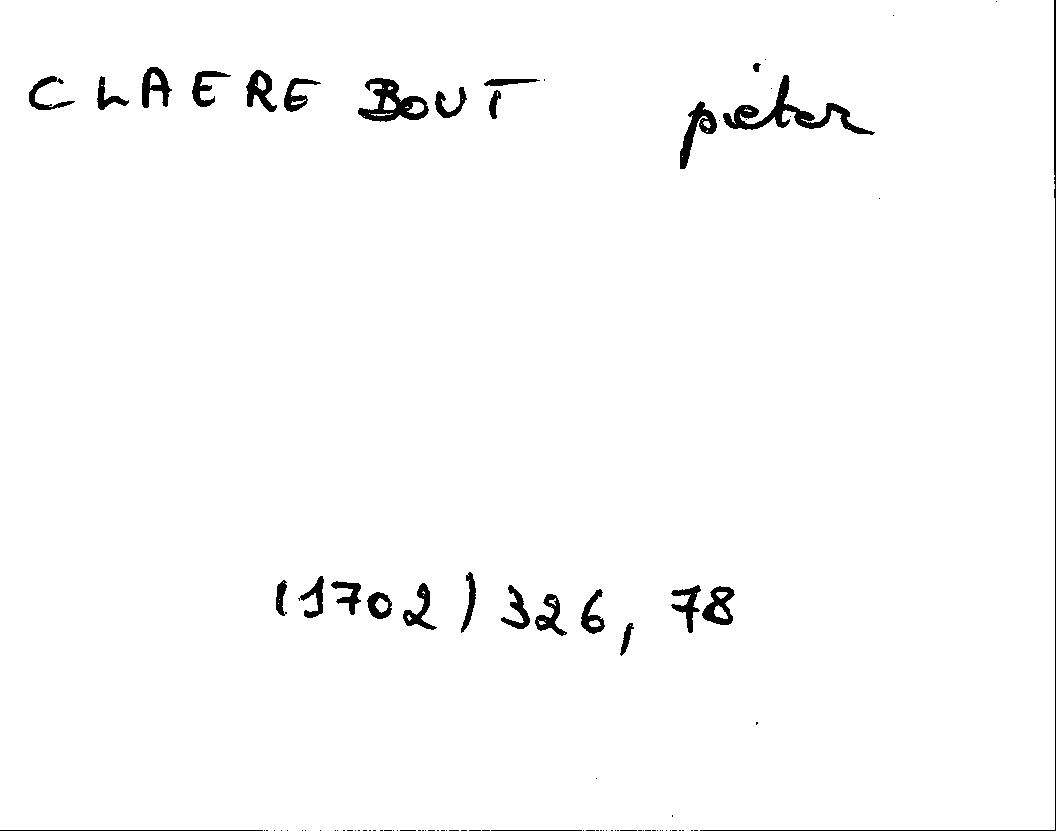 CLAEREBOUT pieter
(1702) 326, 78